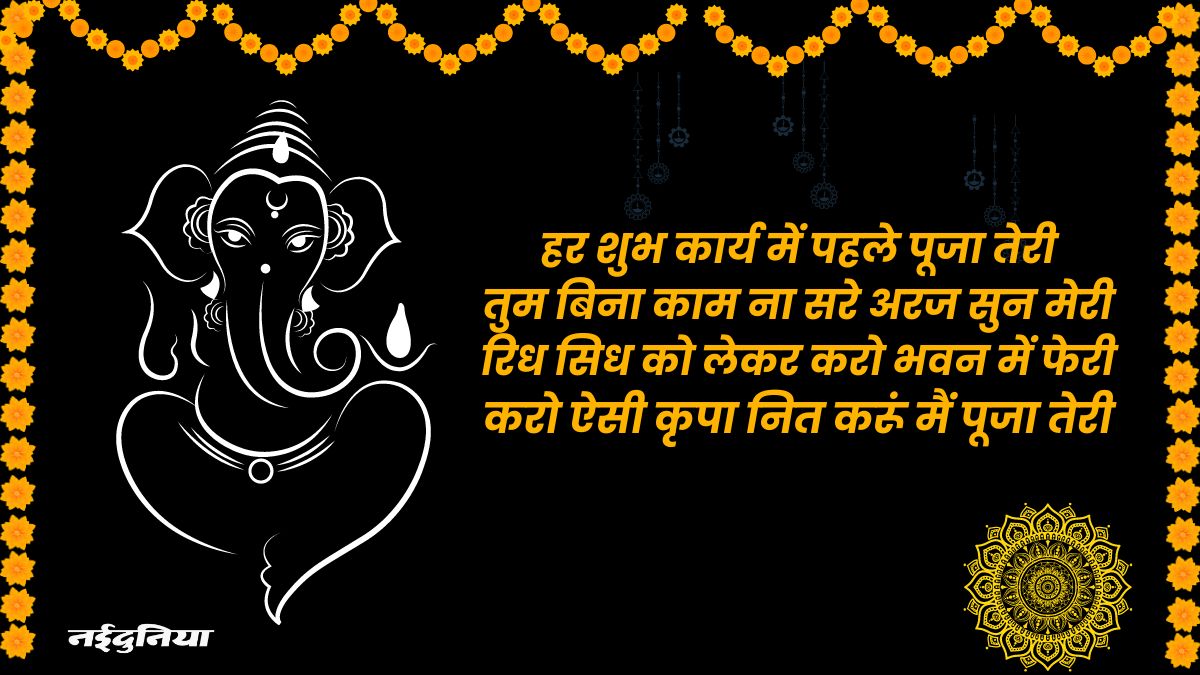 हर शुभ कार्य में पहले पूजा तेरी
तुम बिना काम ना सरे अरज सुन मेरी
रिध सिध को लेकर करो भवन में फेरी
करो ऐसी कृपा नित करूं मैं पूजा तेरी
नईदुनिया